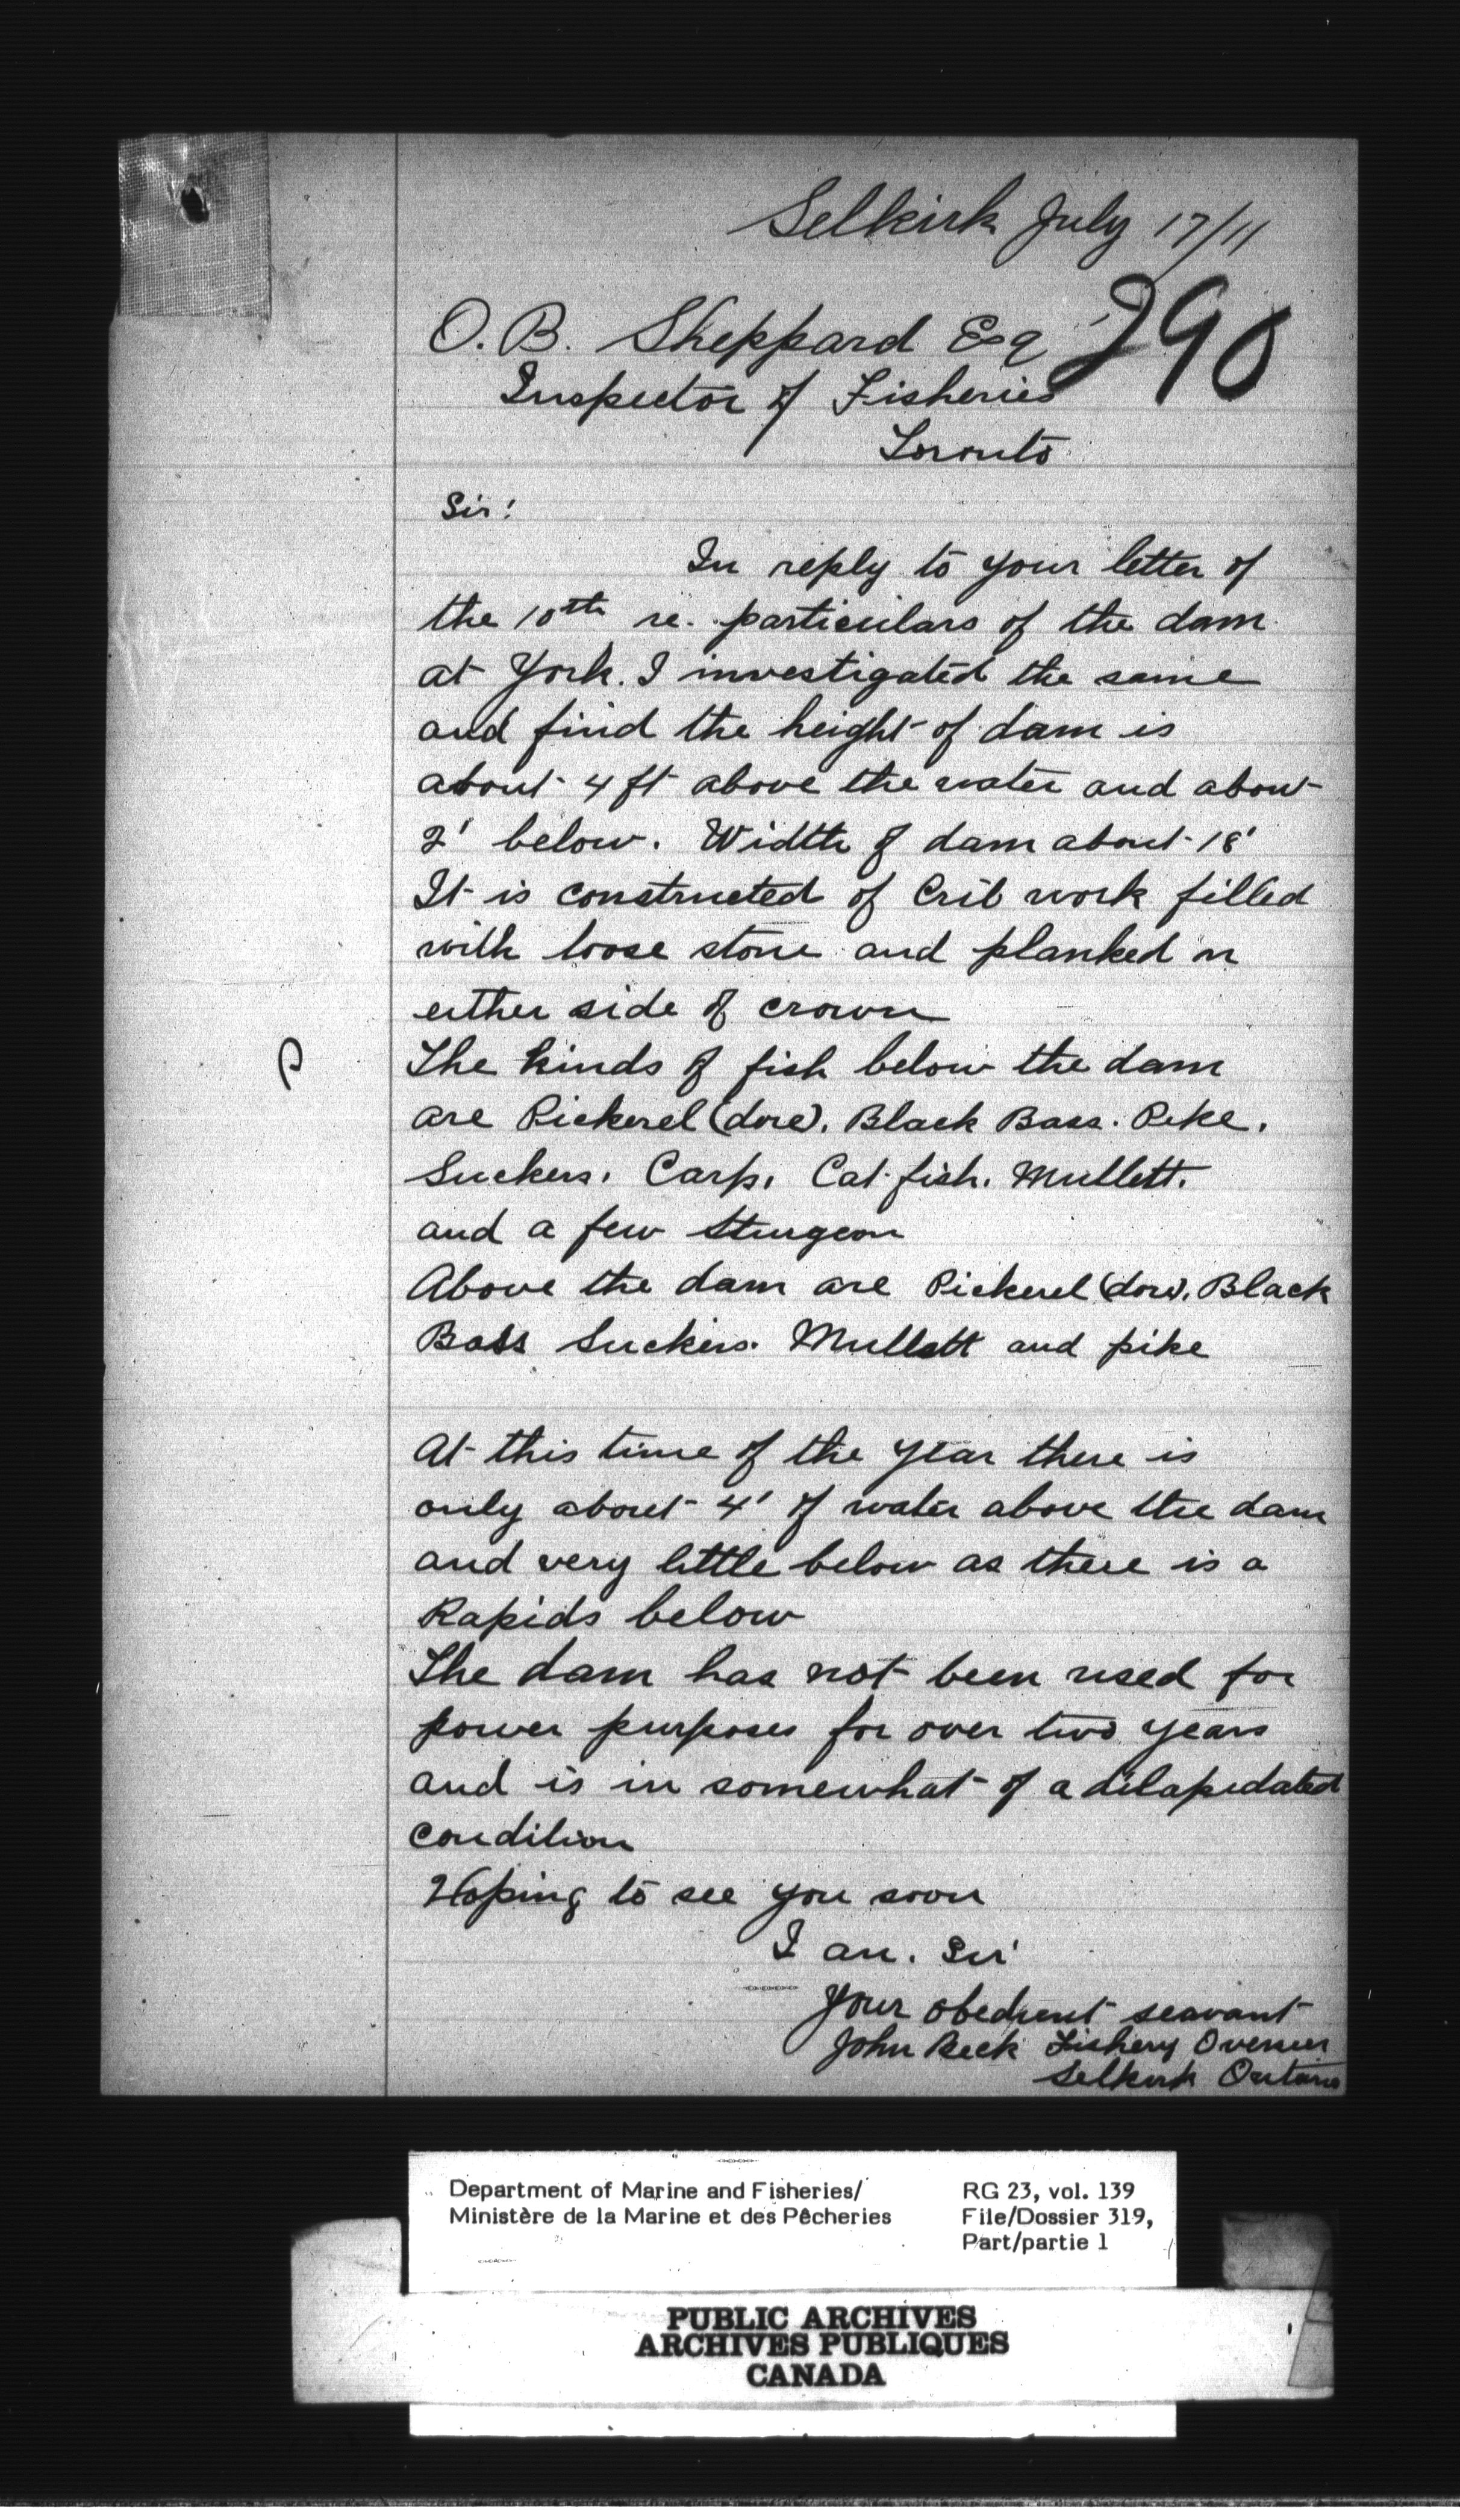 Selkirk July 17/11
290
O. B. Sheppard Esq
Inspector of Fisheries
Toronto
Sir!
In reply to your letter of
the 10th re. particulars of the dam
at York. I investigated the same
and find the height of dam is
about 4 ft above the water and about
2' below. Width of dam about 18'
It is constructed of Crib work filled
with loose stone and planked on
either side of crown
The kinds of fish below the dam
are Pickerel (dore). Black Bass. Pike.
Suckers. Carp. Cat-fish. Mullett.
and a few Sturgeon
Above the dam are Pickerel (dore). Black
Bass Suckers. Mullett and pike
At this time of the year there is
only about 4' of water above the dam
and very little below as there is a
Rapids below
The dam has not been used for
power purposes for over two years
and is in somewhat of a dilapidated
condition
Hoping to see you soon
I am. Sir
Your obedient servant
John Beck Fishery Overseer
Selkirk Ontario
Department of Marine and Fisheries/
Ministère de la Marine et des Pêcheries
RG 23, vol. 139
File/Dossier 319,
Part/partie 1
PUBLIC ARCHIVES
ARCHIVES PUBLIQUES
CANADA